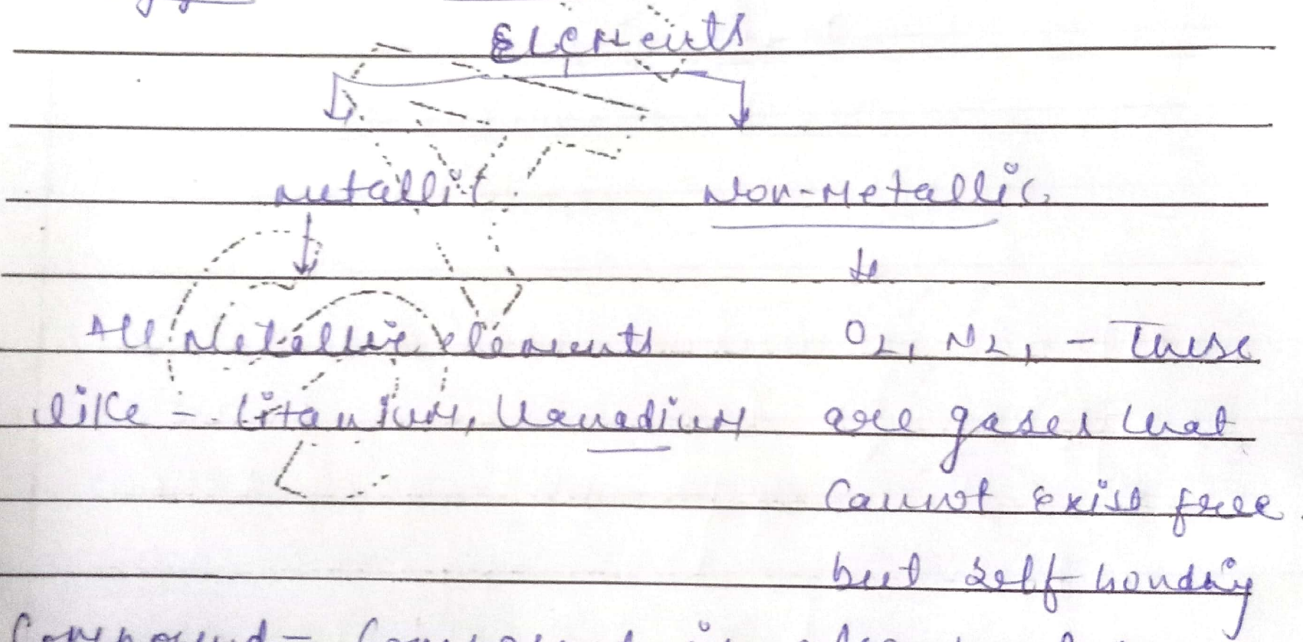 Elements
Metallic Non-Metallic
All Metallic elements O2, N2, - These
like - titanium, Vanadium are gases that
Cannot exist free
but self-bonding
Compound -